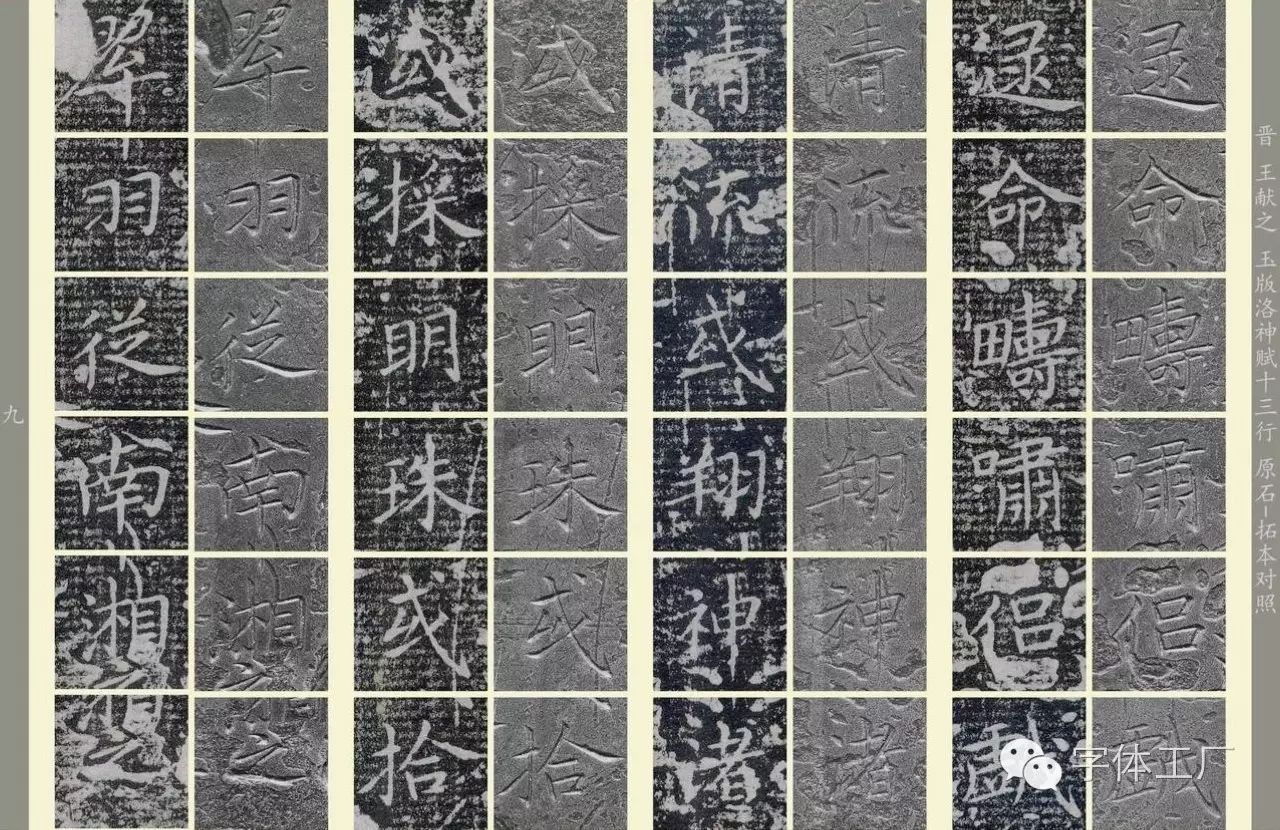 晋 王献之 玉版洛神赋十三行 原石-拓本对照
逯命疇嘯侣戲
逯命疇嘯侣戲
清流或翔神渚
清流或翔神渚
或採明珠或拾
或採明珠或拾
翆羽従南湘之
翆羽従南湘之
九
字体工厂